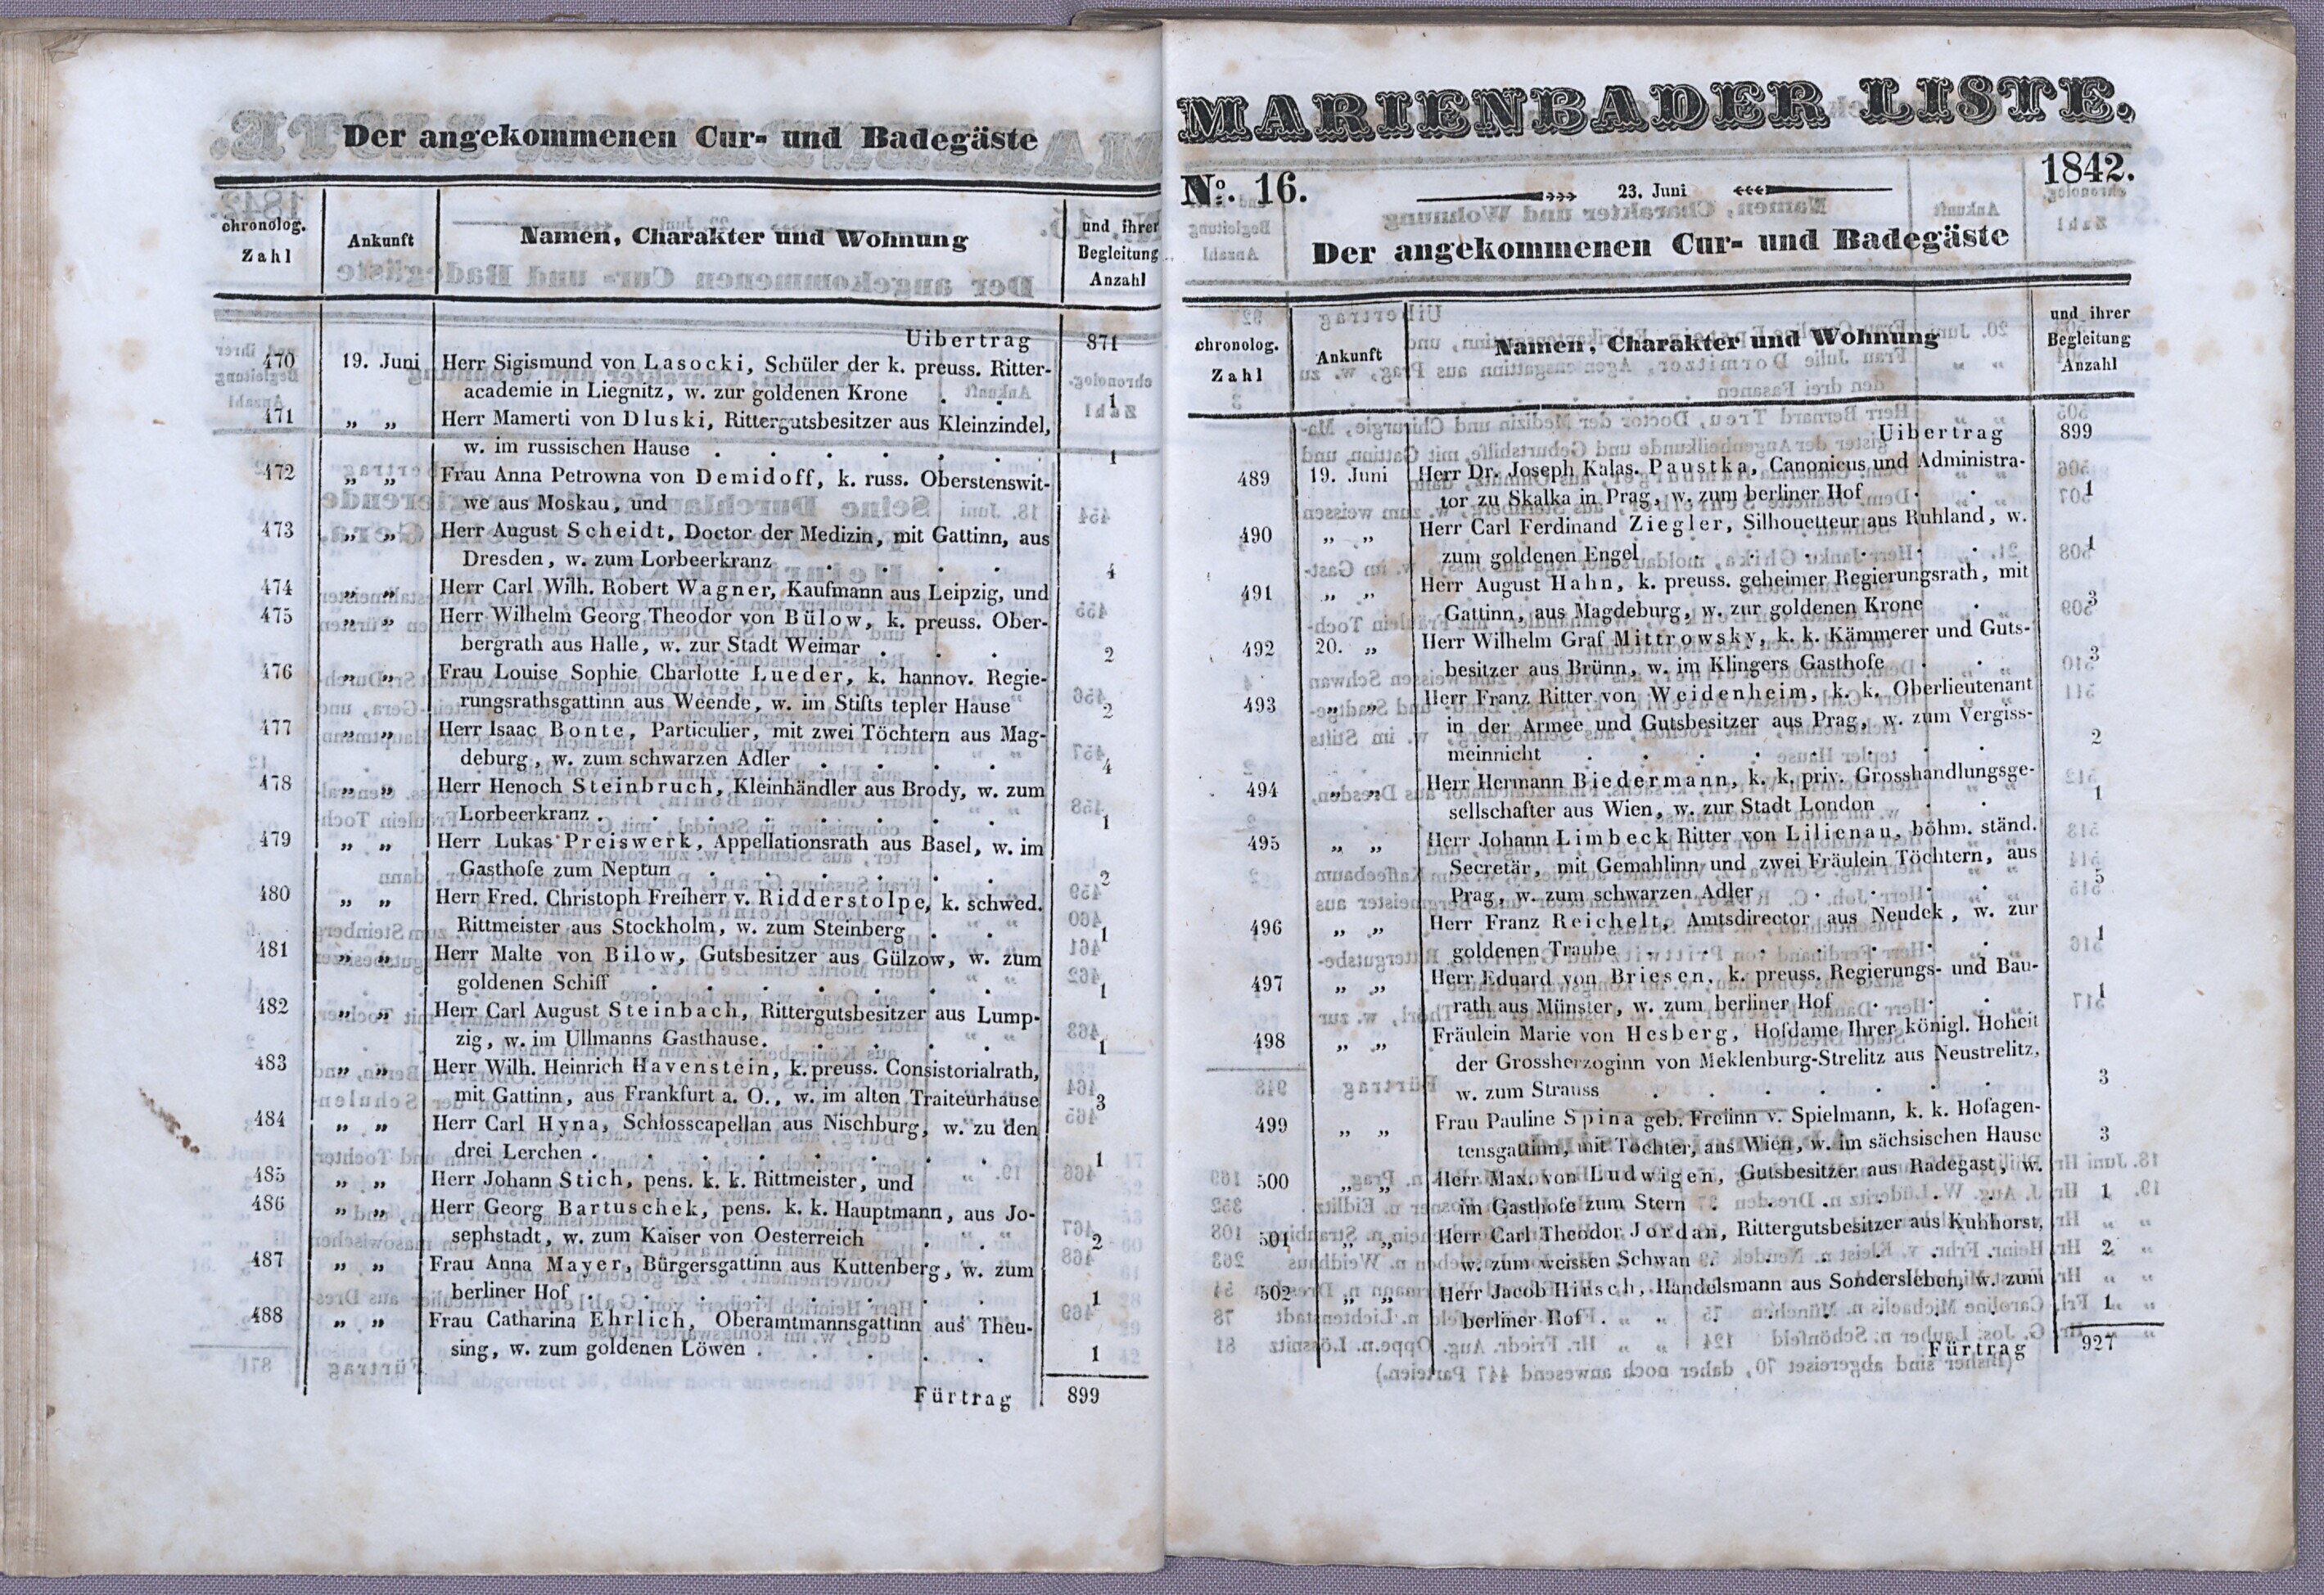 Der angekommenen Cur- und Badegäste
chronolog. Zahl
Ankunft
Namen, Charakter und Wohnung
und ihrer Begleitung Anzahl
Uibertrag 871
470 19. Juni Herr Sigismund von Lasocki, Schüler der k. preuss. Ritter-
academie in Liegnitz, w. zur goldenen Krone . . 1
471 „ „ Herr Mamerti von Dluski, Rittergutsbesitzer aus Kleinzindel,
w. im russischen Hause . . . . . . 1
472 „ „ Frau Anna Petrowna von Demidoff, k. russ. Oberstenswit-
we aus Moskau, und
473 „ „ Herr August Scheidt, Doctor der Medizin, mit Gattinn, aus
Dresden, w. zum Lorbeerkranz . . . . 4
474 „ „ Herr Carl Wilh. Robert Wagner, Kaufmann aus Leipzig, und
475 „ „ Herr Wilhelm Georg Theodor von Bülow, k. preuss. Ober-
bergrath aus Halle, w. zur Stadt Weimar . . . 2
476 „ „ Frau Louise Sophie Charlotte Lueder, k. hannov. Regie-
rungsrathsgattinn aus Weende, w. im Stifts tepler Hause 2
477 „ „ Herr Isaac Bonte, Particulier, mit zwei Töchtern aus Mag-
deburg, w. zum schwarzen Adler . . . . 4
478 „ „ Herr Henoch Steinbruch, Kleinhändler aus Brody, w. zum
Lorbeerkranz . . . . . . . . 1
479 „ „ Herr Lukas Preiswerk, Appellationsrath aus Basel, w. im
Gasthofe zum Neptun . . . . . . 2
480 „ „ Herr Fred. Christoph Freiherr v. Ridderstolpe, k. schwed.
Rittmeister aus Stockholm, w. zum Steinberg . . 1
481 „ „ Herr Malte von Bilow, Gutsbesitzer aus Gülzow, w. zum
goldenen Schiff . . . . . . . 1
482 „ „ Herr Carl August Steinbach, Rittergutsbesitzer aus Lump-
zig, w. im Ullmanns Gasthause. . . . . 1
483 „ „ Herr Wilh. Heinrich Havenstein, k. preuss. Consistorialrath,
mit Gattinn, aus Frankfurt a. O., w. im alten Traiteurhause 3
484 „ „ Herr Carl Hyna, Schlosscapellan aus Nischburg, w. zu den
drei Lerchen . . . . . . . . 1
485 „ „ Herr Johann Stich, pens. k. k. Rittmeister, und
486 „ „ Herr Georg Bartuschek, pens. k. k. Hauptmann, aus Jo-
sephstadt, w. zum Kaiser von Oesterreich . . 2
487 „ „ Frau Anna Mayer, Bürgersgattinn aus Kuttenberg, w. zum
berliner Hof . . . . . . . . 1
488 „ „ Frau Catharina Ehrlich, Oberamtmannsgattinn aus Theu-
sing, w. zum goldenen Löwen . . . . . 1
Fürtrag 899
MARIENBADER LISTE.
No. 16. 23. Juni 1842.
Der angekommenen Cur- und Badegäste
chronolog. Zahl
Ankunft
Namen, Charakter und Wohnung
und ihrer Begleitung Anzahl
Uibertrag 899
489 19. Juni Herr Dr. Joseph Kalas. Paustka, Canonicus und Administra-
tor zu Skalka in Prag, w. zum berliner Hof . . 1
490 „ „ Herr Carl Ferdinand Ziegler, Silhouetteur aus Ruhland, w.
zum goldenen Engel . . . . . . 1
491 „ „ Herr August Hahn, k. preuss. geheimer Regierungsrath, mit
Gattinn, aus Magdeburg, w. zur goldenen Krone . 3
492 20. „ Herr Wilhelm Graf Mittrowsky, k. k. Kämmerer und Guts-
besitzer aus Brünn, w. im Klingers Gasthofe . . 3
493 „ „ Herr Franz Ritter von Weidenheim, k. k. Oberlieutenant
in der Armee und Gutsbesitzer aus Prag, w. zum Vergiss-
meinnicht . . . . . . . . 2
494 „ „ Herr Hermann Biedermann, k. k. priv. Grosshandlungsge-
sellschafter aus Wien, w. zur Stadt London . . 1
495 „ „ Herr Johann Limbeck Ritter von Lilienau, böhm. ständ.
Secretär, mit Gemahlinn und zwei Fräulein Töchtern, aus
Prag, w. zum schwarzen Adler . . . . 5
496 „ „ Herr Franz Reichelt, Amtsdirector aus Neudek, w. zur
goldenen Traube . . . . . . . 1
497 „ „ Herr Eduard von Briesen, k. preuss. Regierungs- und Bau-
rath aus Münster, w. zum berliner Hof . . . 1
498 „ „ Fräulein Marie von Hesberg, Hofdame Ihrer königl. Hoheit
der Grossherzoginn von Meklenburg-Strelitz aus Neustrelitz,
w. zum Strauss . . . . . . . 3
499 „ „ Frau Pauline Spina geb. Freiinn v. Spielmann, k. k. Hofagen-
tensgattinn, mit Tochter, aus Wien, w. im sächsischen Hause 3
500 „ „ Herr Max. von Ludwigen, Gutsbesitzer aus Radegast, w.
im Gasthofe zum Stern . . . . . . 1
501 „ „ Herr Carl Theodor Jordan, Rittergutsbesitzer aus Kuhhorst,
w. zum weissen Schwan . . . . . . 2
502 „ „ Herr Jacob Hirsch, Handelsmann aus Sondersleben, w. zum
berliner Hof . . . . . . . . 1
Fürtrag 927